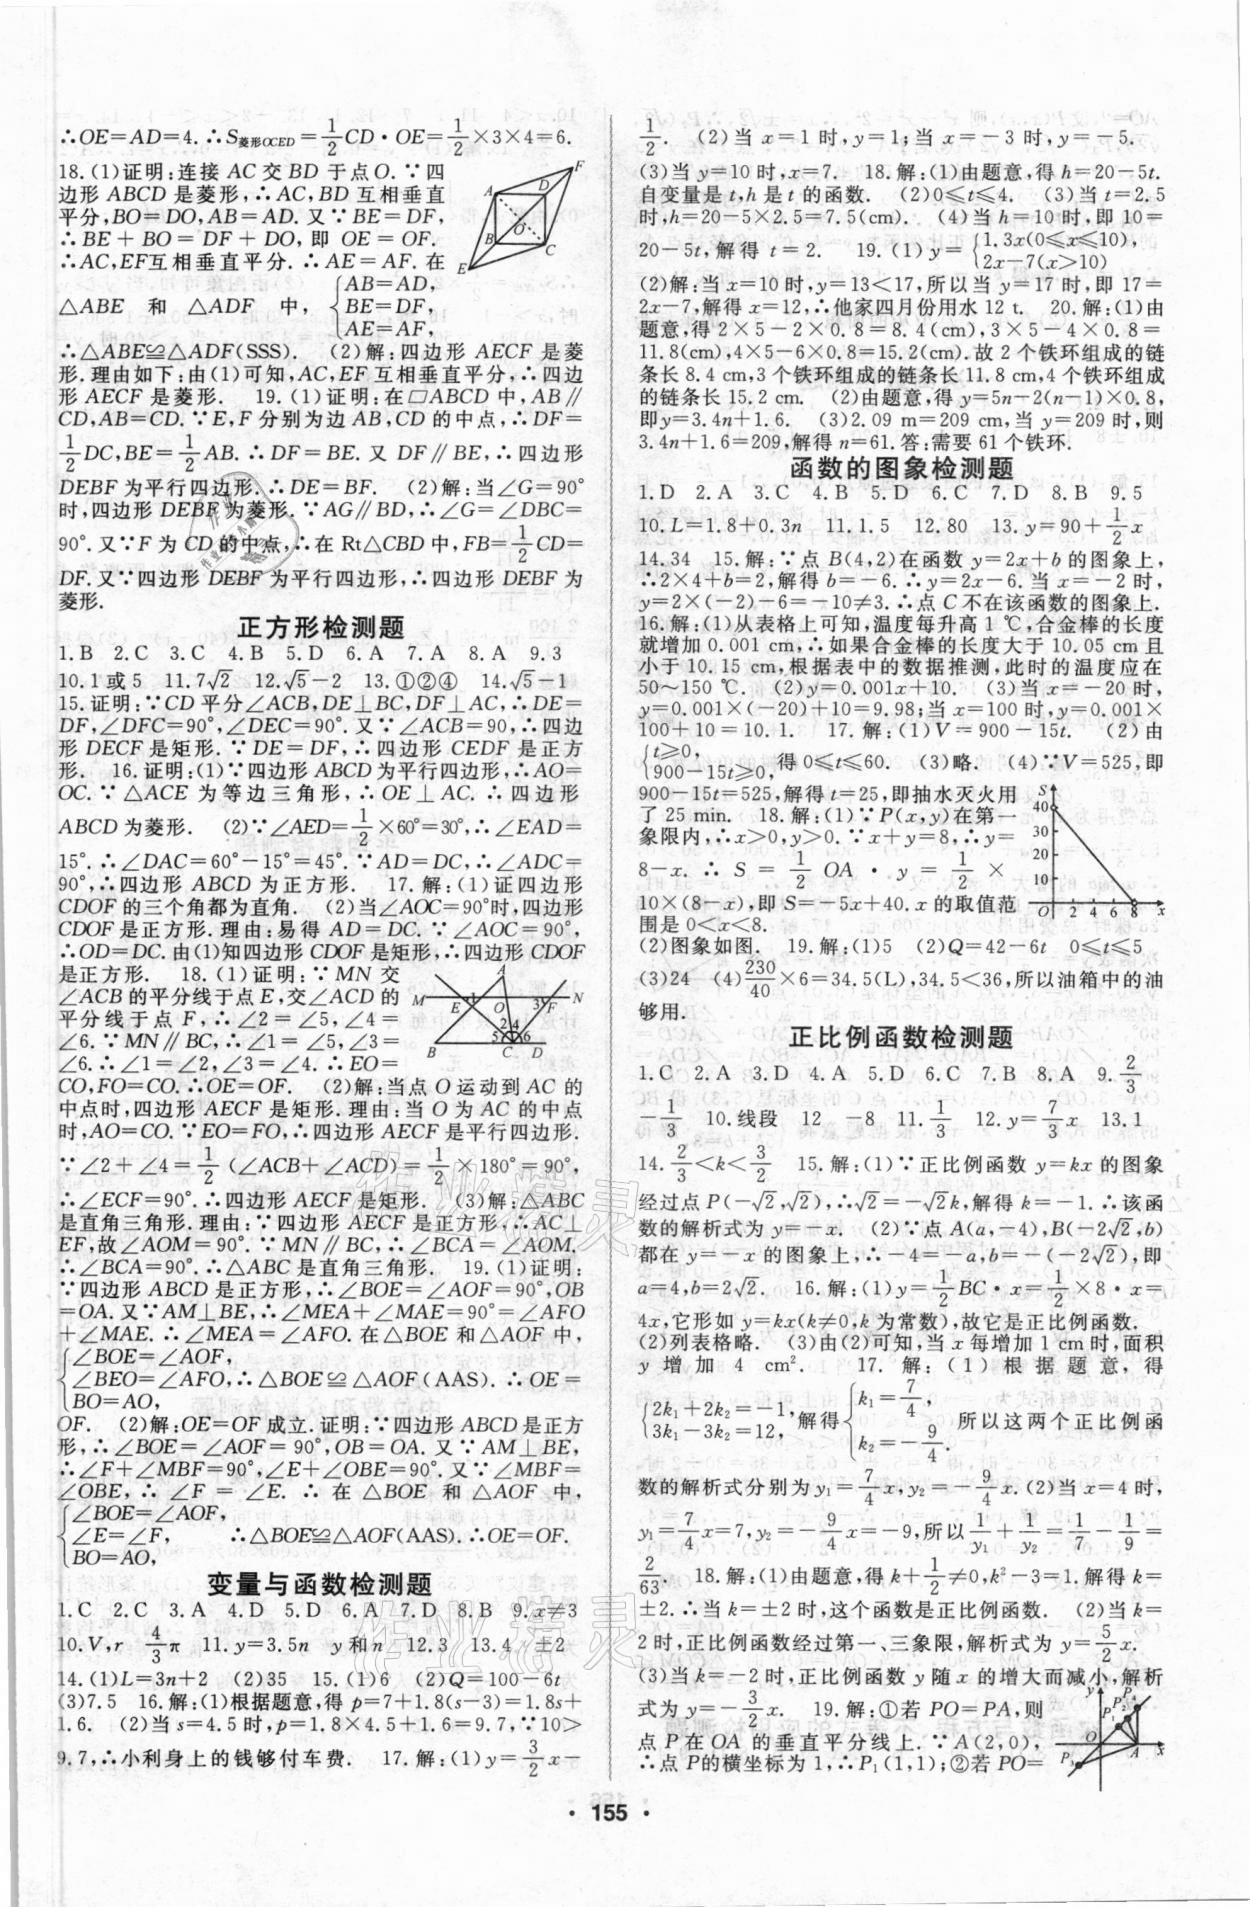 ∴OE=AD=4.∴S菱形OCED=1/2CD·OE=1/2×3×4=6.
18.(1)证明:连接 AC 交 BD 于点O.∵四
边形 ABCD 是菱形,∴AC,BD 互相垂直
平分,BO=DO,AB=AD.又∵BE=DF,
∴BE+BO=DF+DO,即 OE=OF.
∴AC,EF互相垂直平分.∴AE=AF.在
△ABE 和 △ADF 中,{AB=AD, BE=DF, AE=AF,
∴△ABE≌△ADF(SSS). (2)解:四边形 AECF 是菱
形.理由如下:由(1)可知,AC,EF 互相垂直平分,∴四边
形 AECF 是菱形. 19.(1)证明:在□ABCD 中,AB∥
CD,AB=CD.∵E,F 分别为边 AB,CD 的中点,∴DF=
1/2DC,BE=1/2AB.∴DF=BE.又 DF∥BE,∴四边形
DEBF 为平行四边形.∴DE=BF. (2)解:当∠G=90°
时,四边形 DEBF 为菱形.∵AG∥BD,∴∠G=∠DBC=
90°.又∵F 为 CD 的中点,∴在 Rt△CBD 中,FB=1/2CD=
DF.又∵四边形 DEBF 为平行四边形,∴四边形 DEBF 为
菱形.
正方形检测题
1.B 2.C 3.C 4.B 5.D 6.A 7.A 8.A 9.3
10.1 或 5 11.7√2 12.√5−2 13.①②④ 14.√5−1
15.证明:∵CD 平分∠ACB,DE⊥BC,DF⊥AC,∴DE=
DF,∠DFC=90°,∠DEC=90°.又∵∠ACB=90°,∴四边
形 DECF 是矩形.∵DE=DF,∴四边形 CEDF 是正方
形. 16.证明:(1)∵四边形 ABCD 为平行四边形,∴AO=
OC.∵△ACE 为等边三角形,∴OE⊥AC.∴四边形
ABCD 为菱形. (2)∵∠AED=1/2×60°=30°,∴∠EAD=
15°.∴∠DAC=60°−15°=45°.∵AD=DC,∴∠ADC=
90°,∴四边形 ABCD 为正方形. 17.解:(1)证四边形
CDOF 的三个角都为直角. (2)当∠AOC=90°时,四边形
CDOF 是正方形.理由:易得 AD=DC.∵∠AOC=90°,
∴OD=DC.由(1)知四边形 CDOF 是矩形,∴四边形 CDOF
是正方形. 18.(1)证明:∵MN 交
∠ACB 的平分线于点 E,交∠ACD 的
平分线于点 F,∴∠2=∠5,∠4=
∠6.∵MN∥BC,∴∠1=∠5,∠3=
∠6.∴∠1=∠2,∠3=∠4.∴EO=
CO,FO=CO.∴OE=OF. (2)解:当点 O 运动到 AC 的
中点时,四边形 AECF 是矩形.理由:当 O 为 AC 的中点
时,AO=CO.∵EO=FO,∴四边形 AECF 是平行四边形.
∵∠2+∠4=1/2(∠ACB+∠ACD)=1/2×180°=90°,
∴∠ECF=90°.∴四边形 AECF 是矩形. (3)解:△ABC
是直角三角形.理由:∵四边形 AECF 是正方形,∴AC⊥
EF,故∠AOM=90°.∵MN∥BC,∴∠BCA=∠AOM.
∴∠BCA=90°.∴△ABC 是直角三角形. 19.(1)证明:
∵四边形 ABCD 是正方形,∴∠BOE=∠AOF=90°,OB
=OA.又∵AM⊥BE,∴∠MEA+∠MAE=90°=∠AFO
+∠MAE.∴∠MEA=∠AFO.在△BOE 和△AOF 中,
{∠BOE=∠AOF,
∠BEO=∠AFO,∴△BOE≌△AOF(AAS).∴OE=
BO=AO,
OF. (2)解:OE=OF 成立.证明:∵四边形 ABCD 是正方
形,∴∠BOE=∠AOF=90°,OB=OA.又∵AM⊥BE,
∴∠F+∠MBF=90°,∠E+∠OBE=90°.又∵∠MBF=
∠OBE,∴∠F=∠E.∴在△BOE 和△AOF 中,
{∠BOE=∠AOF,
∠E=∠F, ∴△BOE≌△AOF(AAS).∴OE=OF.
BO=AO,
变量与函数检测题
1.C 2.C 3.A 4.D 5.D 6.A 7.D 8.B 9.x≠3
10.V,r 4/3π 11.y=3.5n y 和 n 12.3 13.4 ±2
14.(1)L=3n+2 (2)35 15.(1)6 (2)Q=100−6t
(3)7.5 16.解:(1)根据题意,得 p=7+1.8(s−3)=1.8s+
1.6. (2)当 s=4.5 时,p=1.8×4.5+1.6=9.7,∵10>
9.7,∴小利身上的钱够付车费. 17.解:(1)y=3/2x−
1/2. (2)当 x=1 时,y=1;当 x=−3 时,y=−5.
(3)当 y=10 时,x=7. 18.解:(1)由题意,得 h=20−5t.
自变量是 t,h 是 t 的函数. (2)0≤t≤4. (3)当 t=2.5
时,h=20−5×2.5=7.5(cm). (4)当 h=10 时,即 10=
20−5t,解得 t=2. 19.(1)y={1.3x(0≤x≤10), 2x−7(x>10)
(2)解:当 x=10 时,y=13<17,所以当 y=17 时,即 17=
2x−7,解得 x=12,∴他家四月份用水 12 t. 20.解:(1)由
题意,得 2×5−2×0.8=8.4(cm),3×5−4×0.8=
11.8(cm),4×5−6×0.8=15.2(cm).故 2 个铁环组成的链
条长 8.4 cm,3 个铁环组成的链条长 11.8 cm,4 个铁环组成
的链条长 15.2 cm. (2)由题意,得 y=5n−2(n−1)×0.8,
即y=3.4n+1.6. (3)2.09 m=209 cm,当 y=209 时,则
3.4n+1.6=209,解得 n=61.答:需要 61 个铁环.
函数的图象检测题
1.D 2.A 3.C 4.B 5.D 6.C 7.D 8.B 9.5
10.L=1.8+0.3n 11.1.5 12.80 13.y=90+1/2x
14.34 15.解:∵点 B(4,2)在函数 y=2x+b 的图象上,
∴2×4+b=2,解得 b=−6.∴y=2x−6.当 x=−2 时,
y=2×(−2)−6=−10≠3.∴点 C 不在该函数的图象上.
16.解:(1)从表格上可知,温度每升高 1 ℃,合金棒的长度
就增加 0.001 cm,∴如果合金棒的长度大于 10.05 cm 且
小于 10.15 cm,根据表中的数据推测,此时的温度应在
50~150 ℃. (2)y=0.001x+10. (3)当 x=−20 时,
y=0.001×(−20)+10=9.98;当 x=100 时,y=0.001×
100+10=10.1. 17.解:(1)V=900−15t. (2)由
{t≥0, 900−15t≥0, 得 0≤t≤60. (3)略. (4)∵V=525,即
900−15t=525,解得 t=25,即抽水灭火用
了 25 min. 18.解:(1)∵P(x,y)在第一
象限内,∴x>0,y>0.∵x+y=8,∴y=
8−x.∴S=1/2OA·y=1/2×
10×(8−x),即 S=−5x+40.x 的取值范
围是 0<x<8.
(2)图象如图. 19.解:(1)5 (2)Q=42−6t 0≤t≤5
(3)24 (4)230/40×6=34.5(L),34.5<36,所以油箱中的油
够用.
正比例函数检测题
1.C 2.A 3.D 4.A 5.D 6.C 7.B 8.A 9.2/3
−1/3 10.线段 12 −8 11.1/3 12.y=7/3x 13.1
14.2/3<k<3/2 15.解:(1)∵正比例函数 y=kx 的图象
经过点 P(−√2,√2),∴√2=−√2k,解得 k=−1.∴该函
数的解析式为 y=−x. (2)∵点 A(a,−4),B(−2√2,b)
都在 y=−x 的图象上,∴−4=−a,b=−(−2√2),即
a=4,b=2√2. 16.解:(1)y=1/2BC·x=1/2×8·x=
4x,它形如 y=kx(k≠0,k 为常数),故它是正比例函数.
(2)列表格略. (3)由(2)可知,当 x 每增加 1 cm 时,面积
y 增加 4 cm². 17.解:(1)根据题意,得
{2k₁+2k₂=−1, 3k₁−3k₂=12, 解得{k₁=7/4, k₂=−9/4. 所以这两个正比例函
数的解析式分别为 y₁=7/4x,y₂=−9/4x.(2)当 x=4 时,
y₁=7/4x=7,y₂=−9/4x=−9,所以1/y₁+1/y₂=1/7−1/9=
2/63. 18.解:(1)由题意,得 k+1/2≠0,k²−3=1.解得 k=
±2.∴当 k=±2 时,这个函数是正比例函数. (2)当 k=
2 时,正比例函数经过第一、三象限,解析式为 y=5/2x.
(3)当 k=−2 时,正比例函数 y 随 x 的增大而减小,解析
式为 y=−3/2x. 19.解:①若 PO=PA,则
点 P 在 OA 的垂直平分线上.∵A(2,0),
∴点 P的横坐标为 1,∴P₁(1,1);②若 PO=
· 155 ·